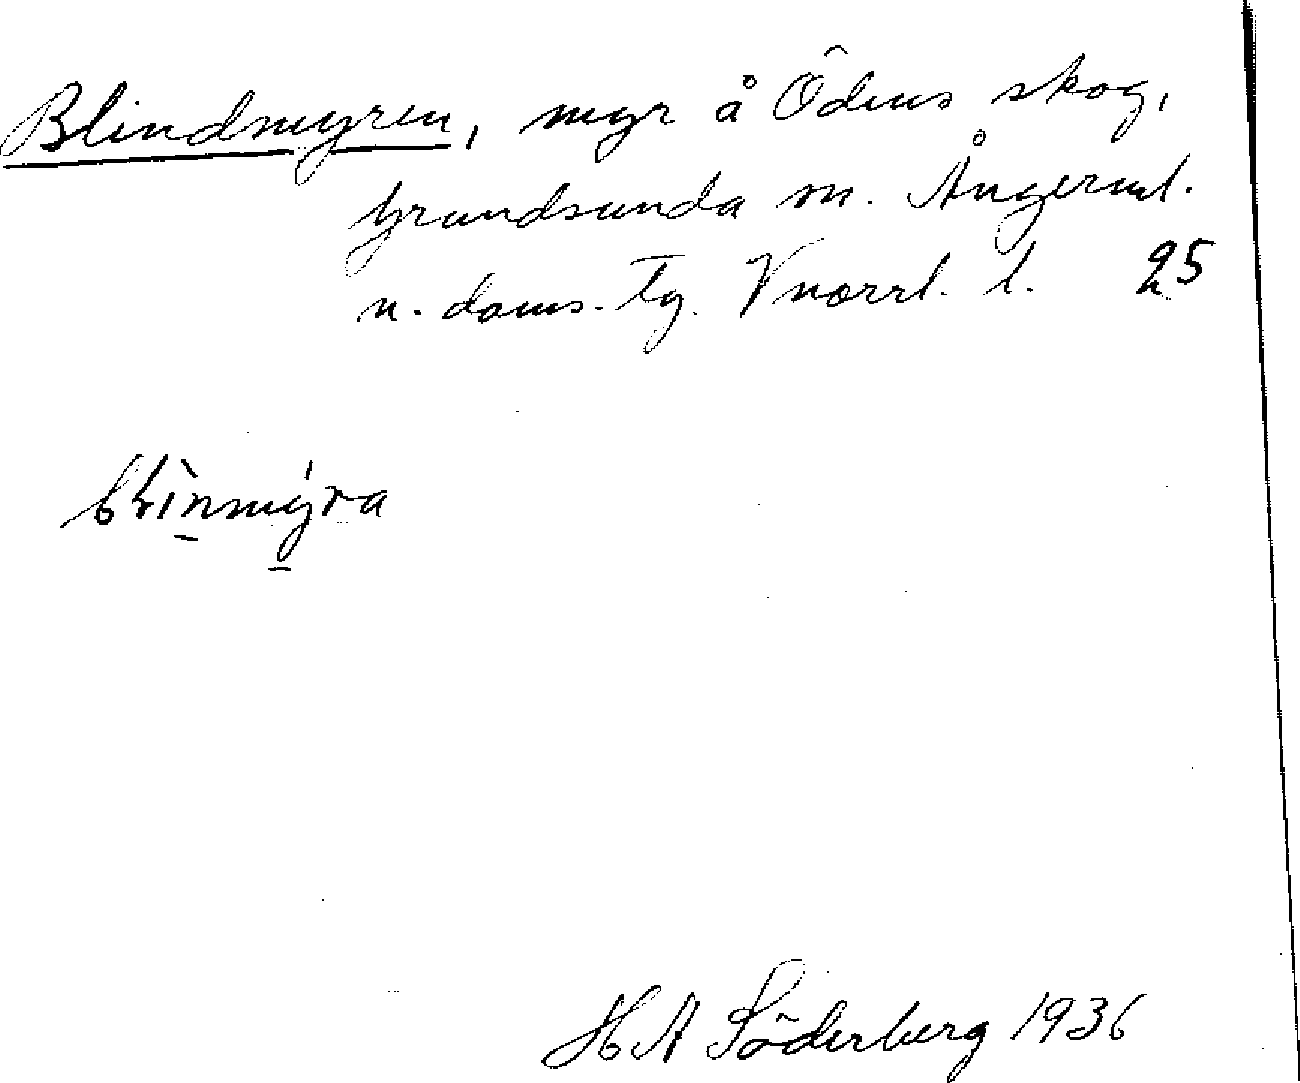 Blindmyren, myr å Ödens skog,
Grundsunda sn. Ångerml.
n. doms. Tg. Vnorrl. l. 25
H A Söderberg 1936